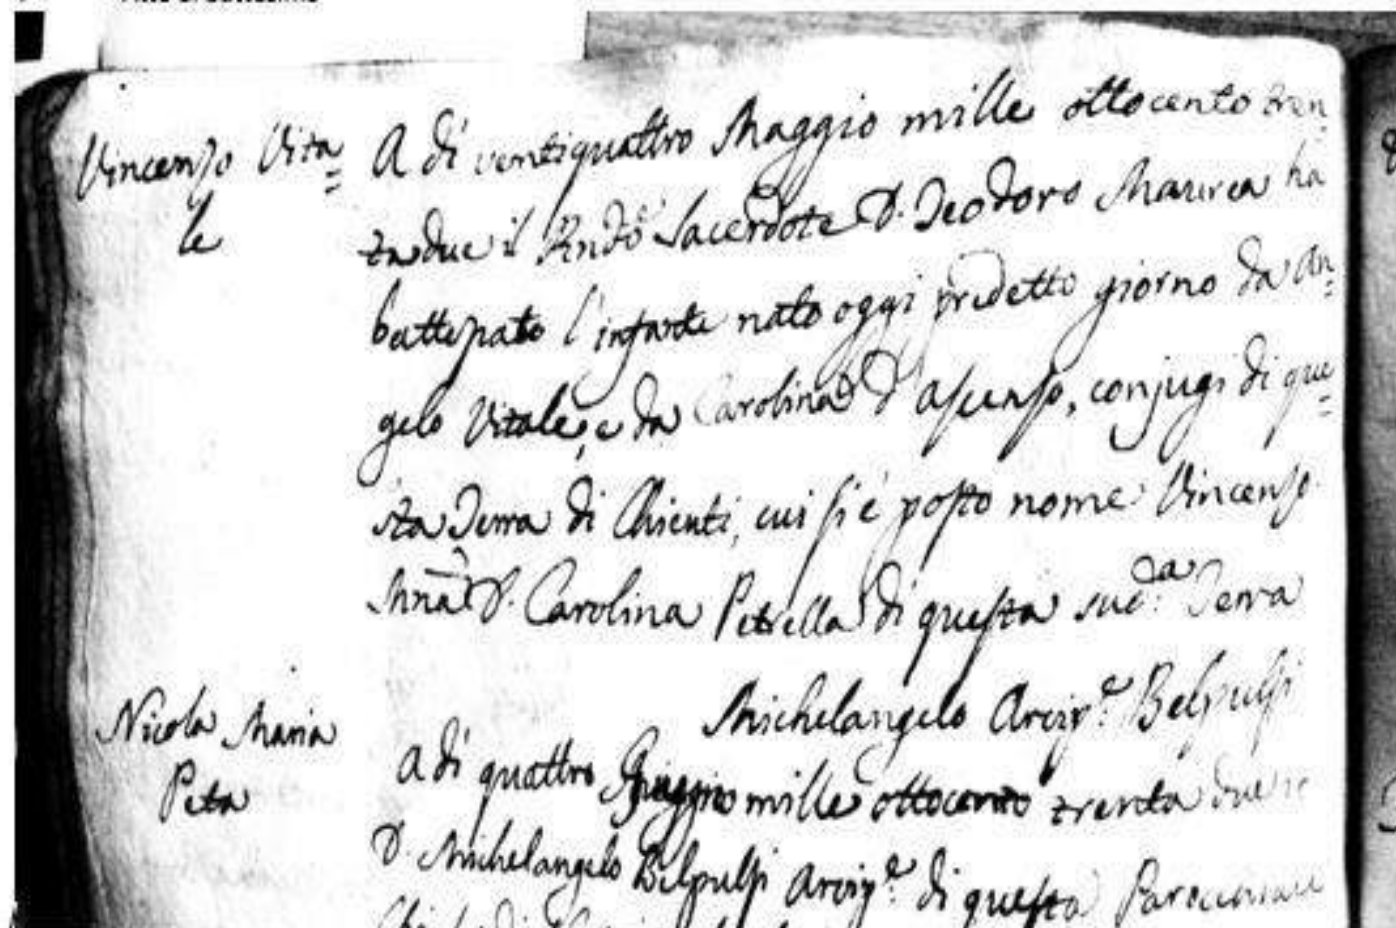 Vincenzo Vita=
le
A dì ventiquattro Maggio mille ottocento tren=
ta due il Rndo Sacerdote D. Teodoro Maurea ha
battezzato l'infante nato oggi predetto giorno da An=
gelo Vitale, e da Carolina D'ascenso, conjugi di que=
sta Terra di Chieuti, cui si è posto nome Vincenzo
D. Carolina Petrella di questa sud.a Terra
Michelangelo Arcip.e Belpulsi
Nicola Maria
Peta
A dì quattro mille ottocento trenta due
D. Michelangelo Belpulsi Arcip.e di questa